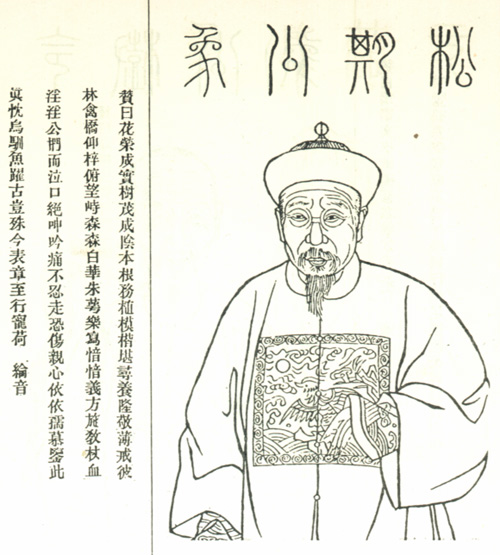 松期公象
贊曰花榮成實樹茂成陰本根務植模楷堪尋養隆敬薄戒彼
林禽橋仰梓俯望峙森森白華朱萼樂寫愔愔義方施教杖血
淫淫公捫而泣口絕呻吟痛不忍走恐傷親心依依孺慕鑒此
眞忱烏馴魚躍古豈殊今表章至行寵荷 綸音